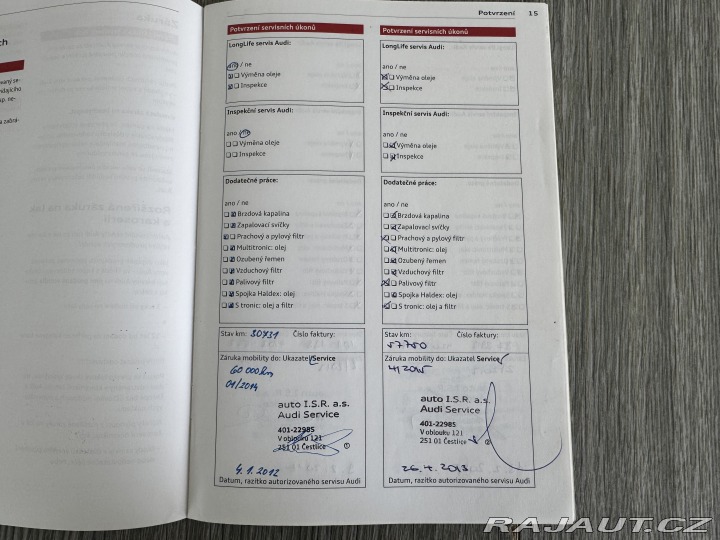 Potvrzení 15
Potvrzení servisních úkonů
LongLife servis Audi:
ano / ne
Výměna oleje
Inspekce
Inspekční servis Audi:
ano / ne
Výměna oleje
Inspekce
Dodatečné práce:
ano / ne
Brzdová kapalina
Zapalovací svíčky
Prachový a pylový filtr
Multitronic: olej
Ozubený řemen
Vzduchový filtr
Palivový filtr
Spojka Haldex: olej
S tronic: olej a filtr
Stav km: 30731 Číslo faktury:
Záruka mobility do: Ukazatel Service
60 000 km
01/2014
auto I.S.R. a.s.
Audi Service
401-22985
V oblouku 121
251 01 Čestlice
4.1.2012
Datum, razítko autorizovaného servisu Audi
Potvrzení servisních úkonů
LongLife servis Audi:
ano / ne
Výměna oleje
Inspekce
Inspekční servis Audi:
ano / ne
Výměna oleje
Inspekce
Dodatečné práce:
ano / ne
Brzdová kapalina
Zapalovací svíčky
Prachový a pylový filtr
Multitronic: olej
Ozubený řemen
Vzduchový filtr
Palivový filtr
Spojka Haldex: olej
S tronic: olej a filtr
Stav km: Číslo faktury:
57750
Záruka mobility do: Ukazatel Service
4/2015
auto I.S.R. a.s.
Audi Service
401-22985
V oblouku 121
251 01 Čestlice
26.4.2013
Datum, razítko autorizovaného servisu Audi
RAJAUT.CZ